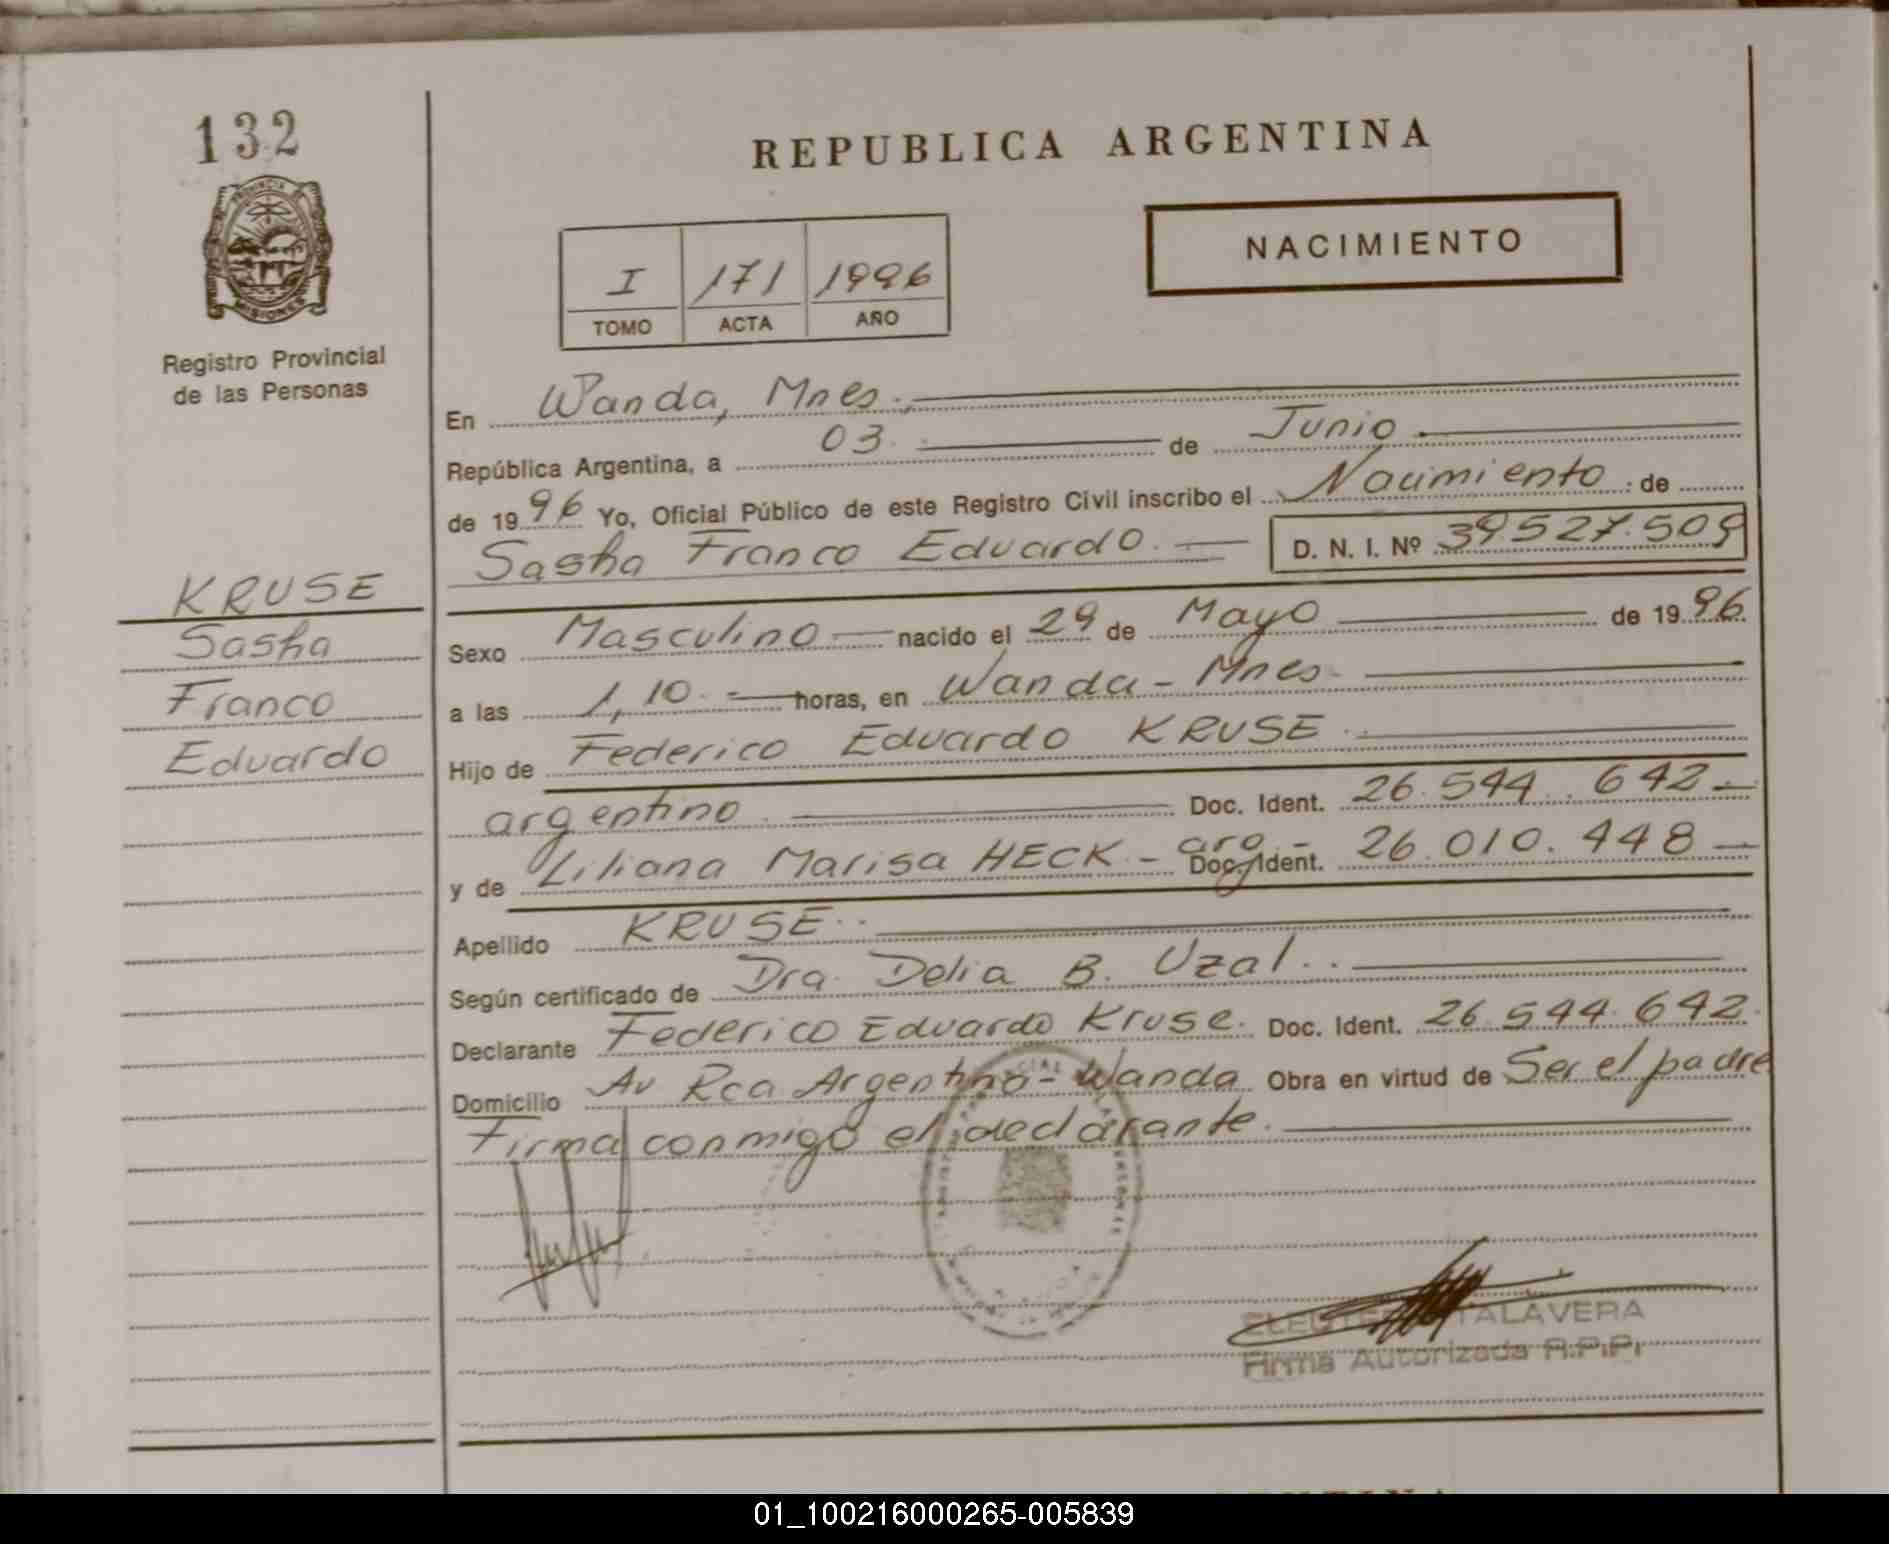 132
PROVINCIA DE
MISIONES
Registro Provincial
de las Personas
KRUSE
Sasha
Franco
Eduardo
REPUBLICA ARGENTINA
I 171 1996
TOMO ACTA AÑO
NACIMIENTO
En Wanda, Mnes.
República Argentina, a 03 de Junio
de 1996 Yo, Oficial Público de este Registro Civil inscribo el Nacimiento de
Sasha Franco Eduardo. D. N. I. Nº 39.527.509
Sexo Masculino nacido el 29 de Mayo de 1996
a las 1,10 horas, en Wanda - Mnes.
Hijo de Federico Eduardo KRUSE
argentino Doc. Ident. 26.544.642
y de Liliana Marisa HECK - arg. - Doc. Ident. 26.010.448
Apellido KRUSE
Según certificado de Dra. Delia B. Uzal.
Declarante Federico Eduardo Kruse. Doc. Ident. 26.544.642
Domicilio Av Rca Argentina - Wanda Obra en virtud de Ser el padre
Firma conmigo el declarante.
TALAVERA
Firma Autorizada R.P.P.
01_100216000265-005839